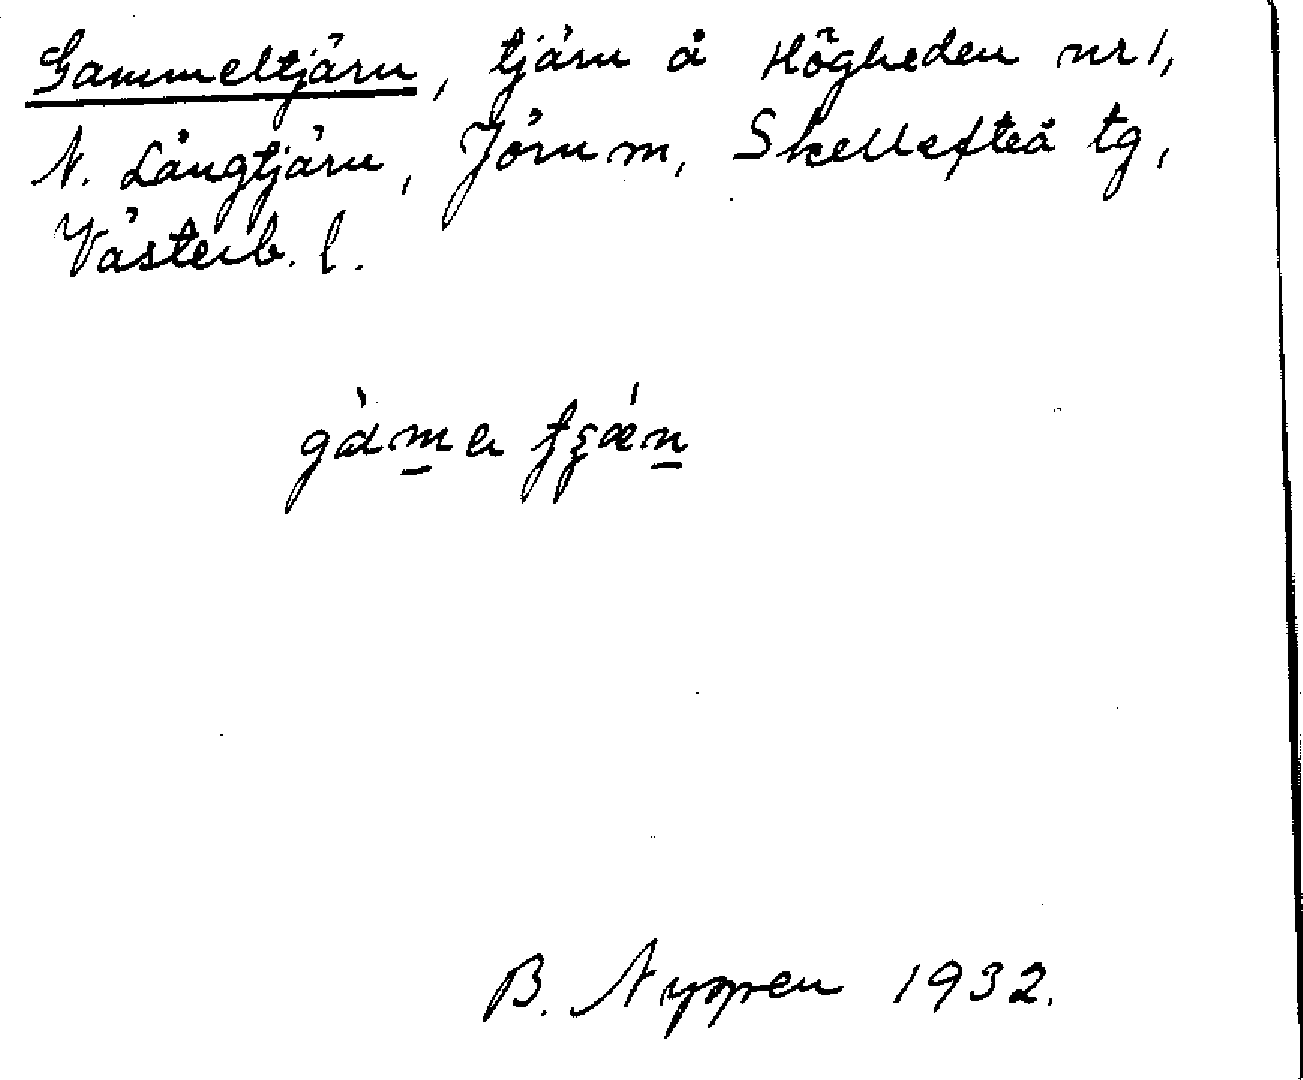 Gammeltjärn, tjärn å Högheden nr 1,
N. Långtjärn, Jörn m, Skellefteå tg,
Västerb. l.
B. Nyppen 1932.